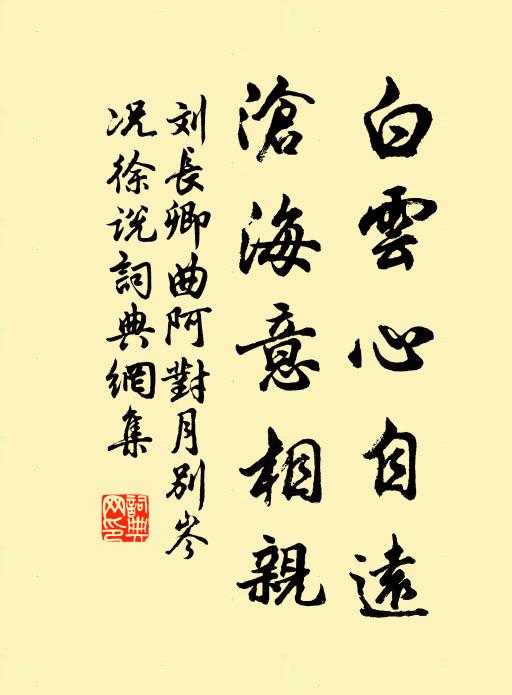 白雲心自遠
滄海意相親
刘長卿曲阿對月别岑
况徐说詞典網集
詞典网印